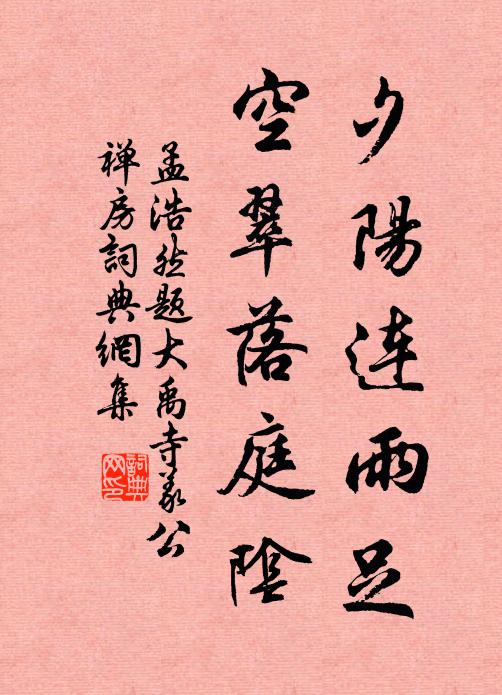 夕陽連雨足
空翠落庭陰
孟浩然題大禹寺義公
禅房詞典網集
詞典网印